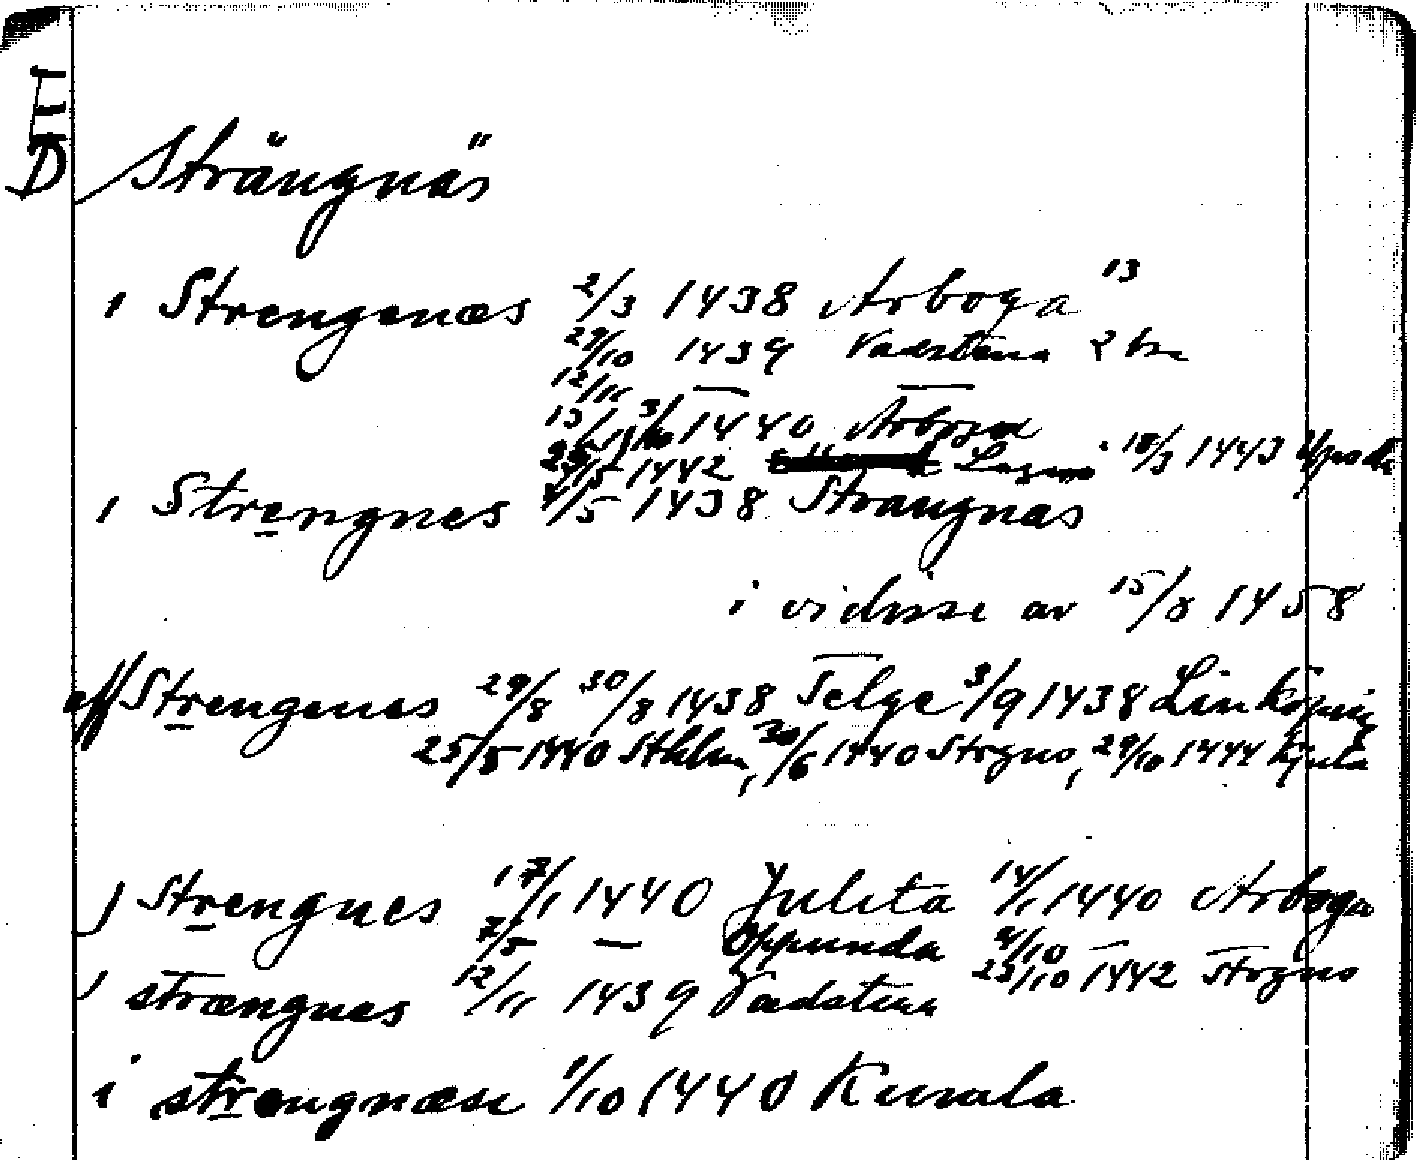 DE
Strängnäs
i Strengenæs 2/3 1438 Arboga 13
29/10 1439 Vadstena 2 br
12/11 — —
13/1 3/10 1440 Arboga
25/5 1442 18/3 1443 Upsala
i Strengnes 4/5 1438 Strängnäs
i vidisse av 15/8 1458
aff Strengenes 29/8 30/8 1438 Telge 3/9 1438 Linköping
25/5 1440 Sthlm, 30/6 1440 Strgns, 29/10 1444 Kjula
j Strengnes 17/1 1440 Julita 14/1 1440 Arboga
7/5 — Oppunda 4/10 —
i strængnes 12/11 1439 Vadstena 23/10 1442 Strgns
i strengnæse 1/10 1440 Kumla